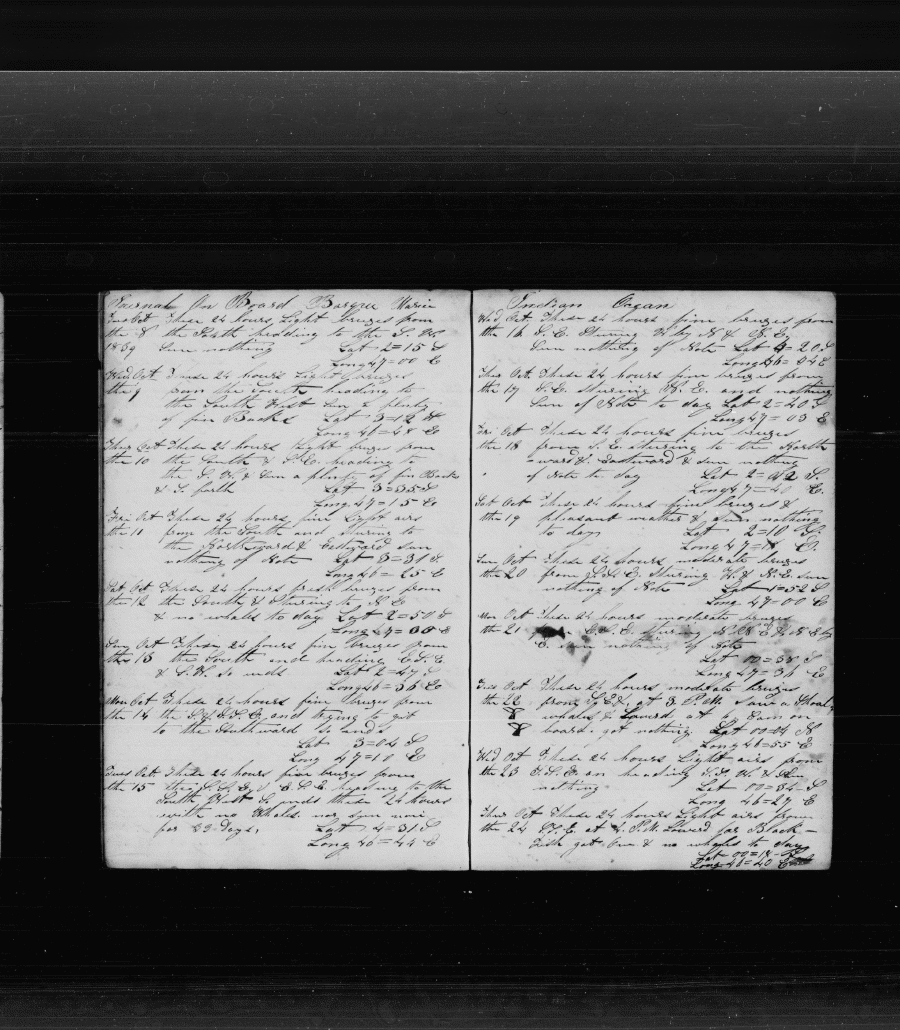 Journal On Board Barque Marie
Tues Oct These 24 hours Light breezes from
the 8 the South heading to the S. W.
1839 Seen nothing Lat 2=15 S
Long 47=00 E
Wed Oct These 24 hours Light breezes
the 9 from the South heading to
the South West Seen a plenty
of fin Backs Lat 3=12
Long 46=48 E
Thurs Oct These 24 hours Light brezes from
the 10 the South & S.E. heading to
the S. W. & Seen a plenty of fin Backs
& So forth Lat 3=35 S
Long 47=15 E
Fri Oct These 24 hours fine Light airs
the 11 from the South and stearing to
the Northward & Eastward seen
nothing of Note Lat 3=31 S
Long 46=25 E
Sat Oct These 24 hours fresh brezes from
the 12 the South & stearing to N E
& no whales to day Lat 2=50 S
Long 47=08 E
Sun Oct These 24 hours fine brezes from
the 13 the South and heading E.S.E.
& S.W. So ends Lat 2=47 S
Long 46=36 E
Mon Oct These 24 hours fine brezes from
the 14 the and trying to git
to the Southward So ends
Lat 3=04 S
Long 47=10 E
Tues Oct These 24 hours fine brezes from
the 15 the S.S.E. & E.S.E. heading to the
South West So ends these 24 hours
with no Whals nor seen none
for 22 days. Lat 4=31 S
Long 46=44 E
Indian Ocean
Wed Oct These 24 hours fine brezes from
the 16 S. E. Stearing N. by N. & N. E.
Seen nothing of Note Lat 4=20 S
Long 46=04 E
Thurs Oct These 24 hours fine brezes from
the 17 S.E. stearing N. E. and nothing
Seen of Note to day Lat 2=40 S
Long 47=03 E
Fri Oct These 24 hours fine brezes
the 18 from S. E. stearing to the North
ward & Eastward & seen nothing
of Note to day Lat 2=02 S.
Long 47=40 E.
Sat Oct These 24 hours fine brezes &
the 19 pleasant weather & seen nothing
to day Lat 2=10 S.
Long 47=18 E.
Sun Oct These 24 hours moderate brezes
the 20 from S. S. E. Stearing N. & N. E. seen
nothing of Note Lat 1=52 S
Long 47=00 E
Mon Oct These 24 hours moderate brezes
the 21 E.S.E. stearing N.N.E & N E by
E. seen nothing of Note
Lat 00=38 S
Long 47=36 E
Tues Oct These 24 hours moderate brezes
the 22 from at 3 P.M. Saw a Shoal
whales & Lowerd at 6 Came on
board. got nothing. Lat 00=04 N
Long 46=55 E
Wed Oct These 24 hours Light airs from
the 23 S.S.E. an heading S. S. W. & Seen
nothing Lat 00=34 S
Long 46=27 E
Thurs Oct These 24 hours Light airs from
the 24 S. E. at 4. P.M. Lowerd for Black-
Fish got One & no whales to day
Lat 00=18 S
Long 46=40 E